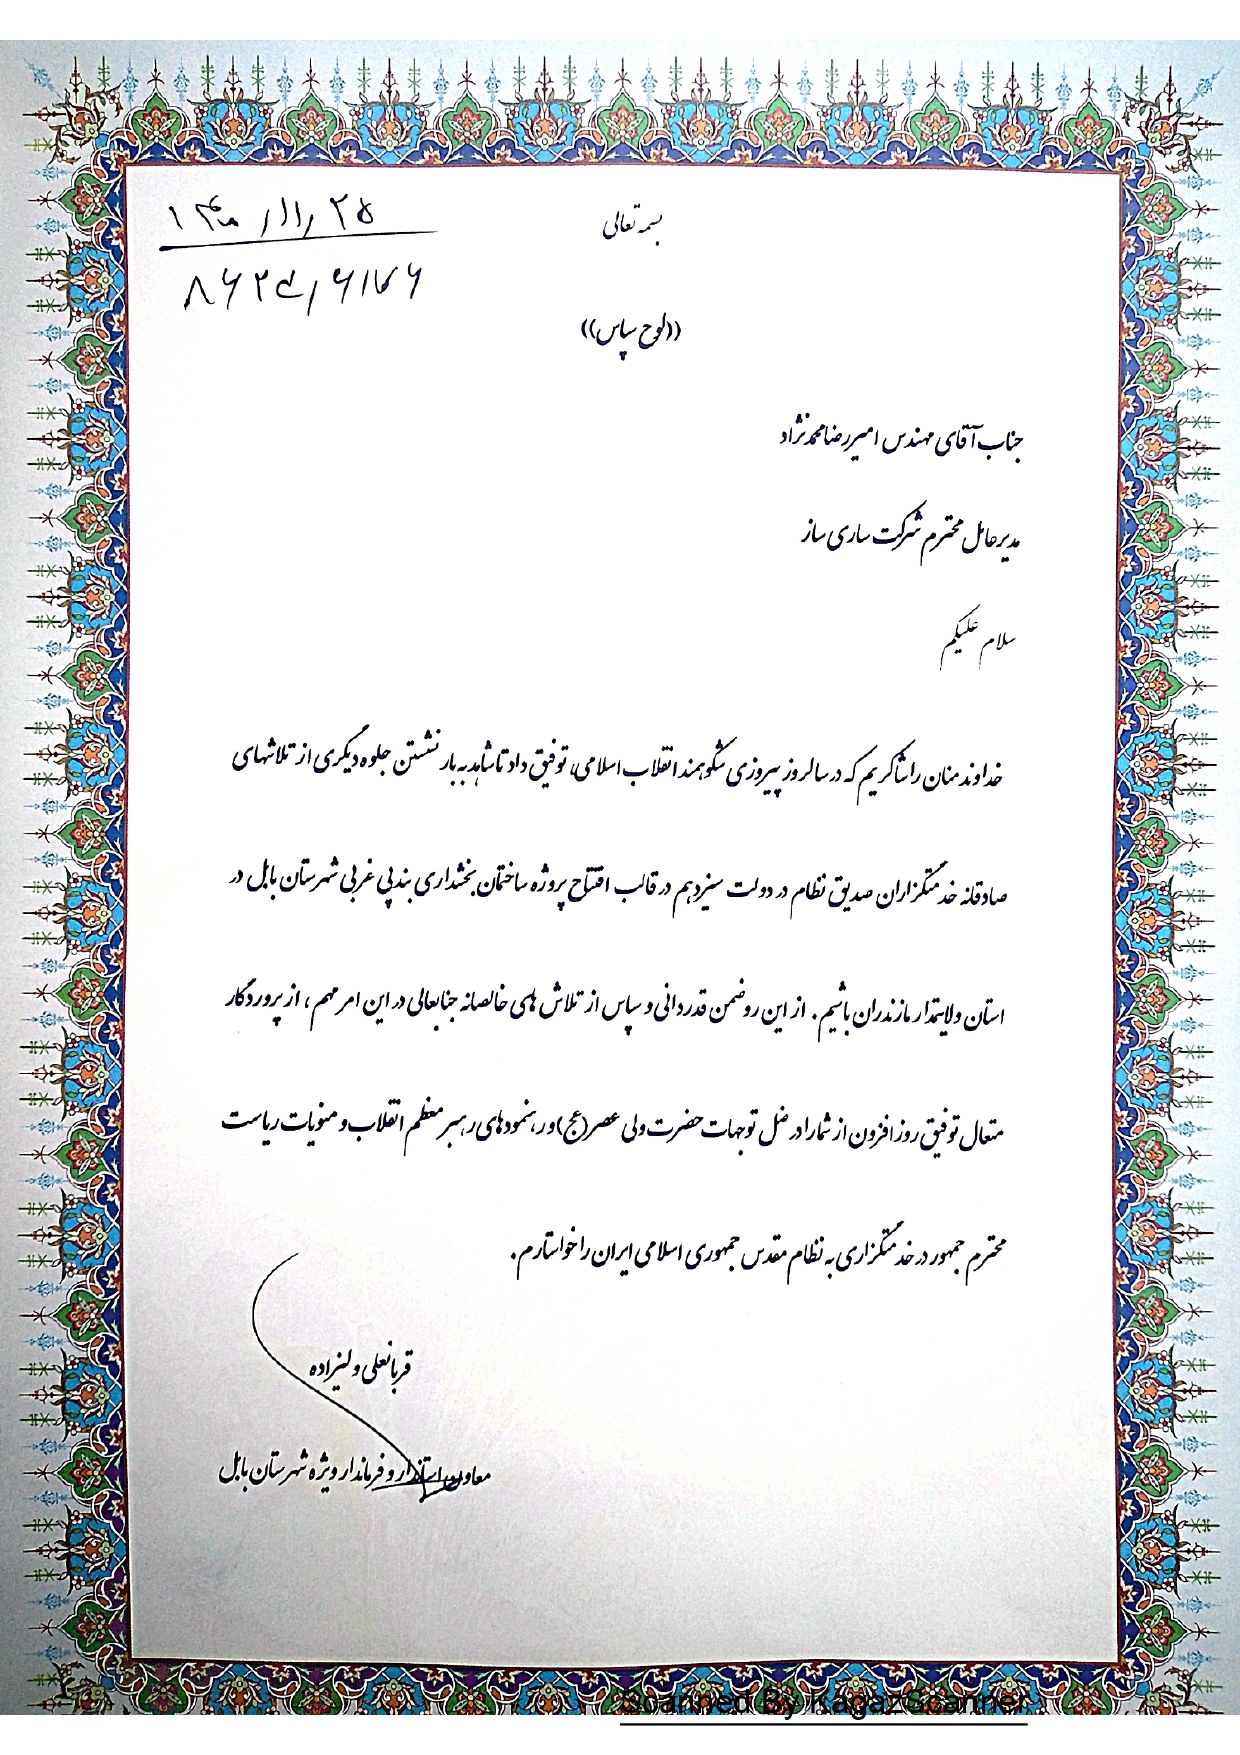 ۱۴۰۰/۱۱/۲۵
بسمه تعالی
((لوح سپاس))
جناب آقای مهندس امیررضا محمدنژاد
مدیرعامل محترم شرکت ساری ساز
سلام علیکم
خداوند منان را شاکریم که در سالروز پیروزی شکوهمند انقلاب اسلامی، توفیق داد تا شاهد به بار نشستن جلوه دیگری از تلاشهای
صادقانه خدمتگزاران صدیق نظام در دولت سیزدهم در قالب افتتاح پروژه ساختمان بخشداری بندپی غربی شهرستان بابل در
استان ولایتمدار مازندران باشیم. از این رو ضمن قدردانی و سپاس از تلاش های خالصانه جنابعالی در این امر مهم، از پروردگار
متعال توفیق روز افزون از شما را در ظل توجهات حضرت ولی عصر(عج) و رهنمودهای رهبر معظم انقلاب و منویات ریاست
محترم جمهور در خدمتگزاری به نظام مقدس جمهوری اسلامی ایران را خواستارم.
قربانعلی ولیزاده
معاون استاندار و فرماندار ویژه شهرستان بابل
Scanned By KagazScanner